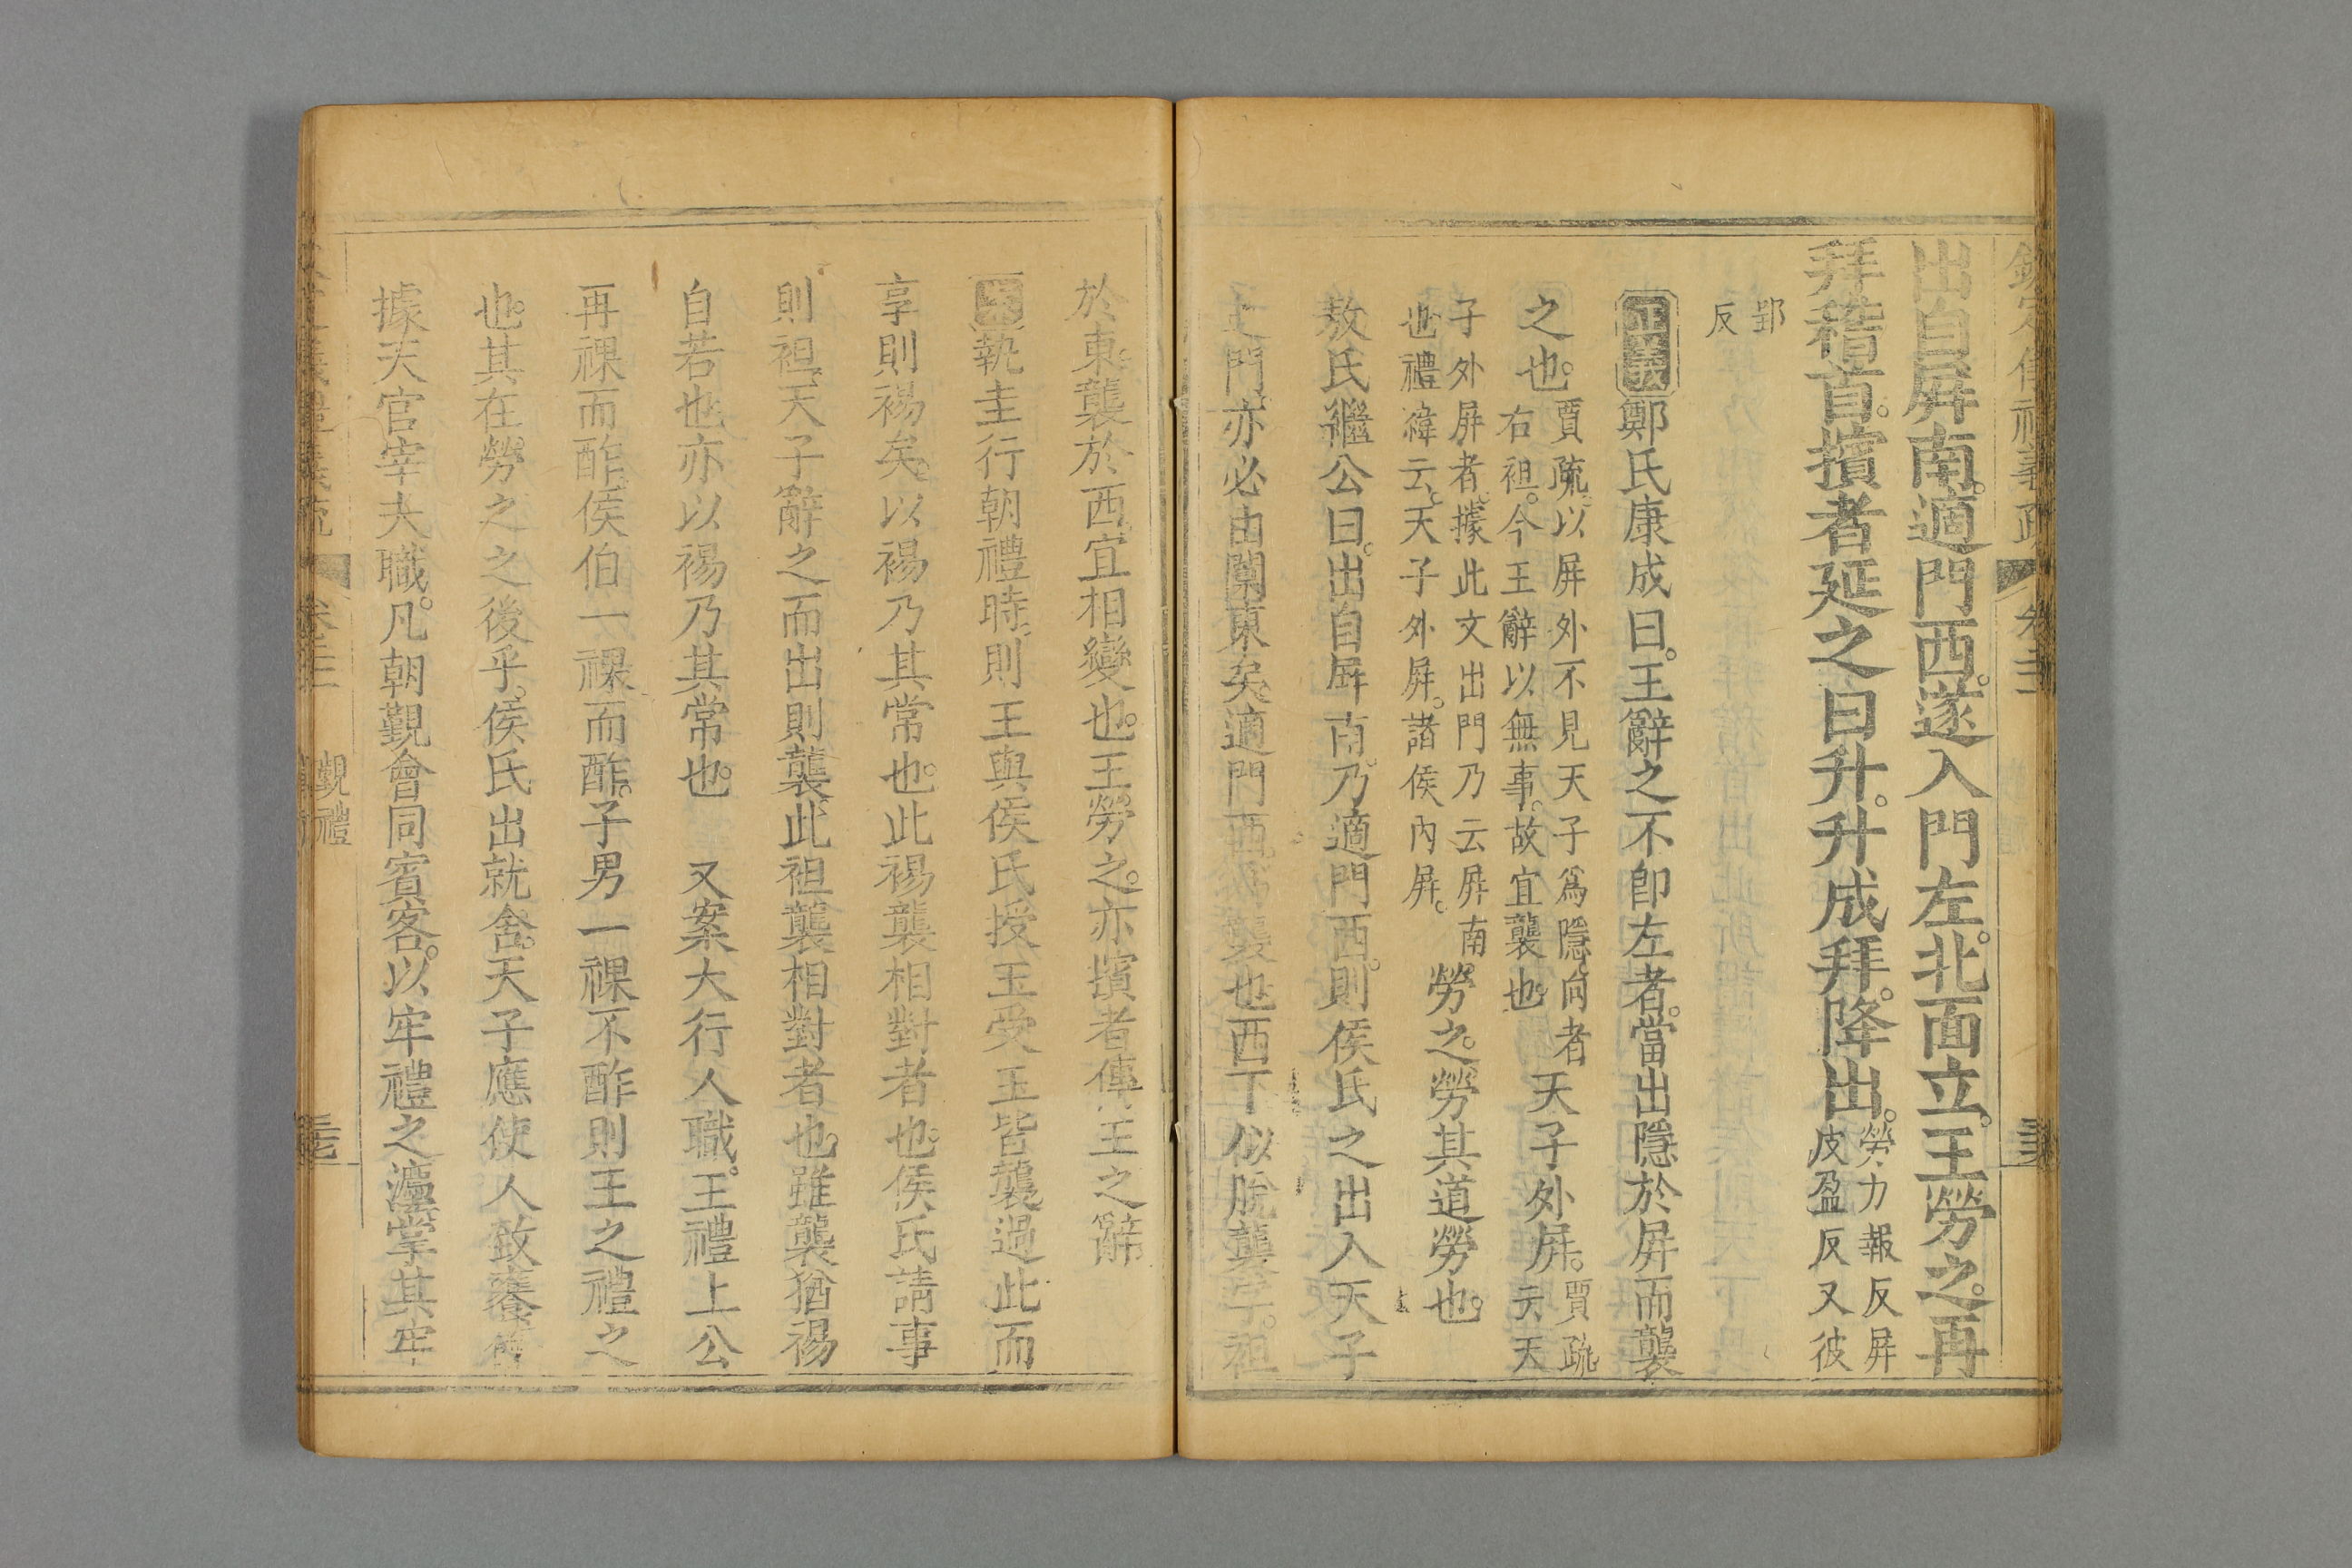 出自屏南。適門西。遂入門左。北面立。王勞之。再
拜稽首。擯者延之曰升。升成拜。降出。勞力報反屏
皮盈反又彼
郢
反
正義鄭氏康成曰。王辭之不卽左者。當出隱於屏而襲
之也。賈疏以屏外不見天子爲隱向者
右袒。今王辭以無事。故宜襲也
天子外屏。賈疏
云天
子外屏者。據此文出門乃云屏南
也禮緯云天子外屏。諸侯內屏。
勞之。勞其道勞也。
敖氏繼公曰。出自屏南。乃適門西。則侯氏之出入天子
之門。亦必由闑東矣適門西爲襲也西下似脫襲字。袒
於東。襲於西。宜相變也。王勞之。亦擯者傳王之辭
案執圭行朝禮時。則王與侯氏授玉受玉皆襲過此而
享則裼矣。以裼乃其常也。此裼襲相對者也。侯氏請事
則袒。天子辭之而出則襲。此袒襲相對者也。雖襲猶裼
自若也。亦以裼乃其常也。又案大行人職。王禮上公
再祼而酢。侯伯一祼而酢。子男一祼不酢則王之禮之
也。其在勞之之後乎。侯氏出就舍。天子應使人致饔餼
據天官宰夫職。凡朝覲會同賓客。以牢禮之灋。掌其牢
覲禮